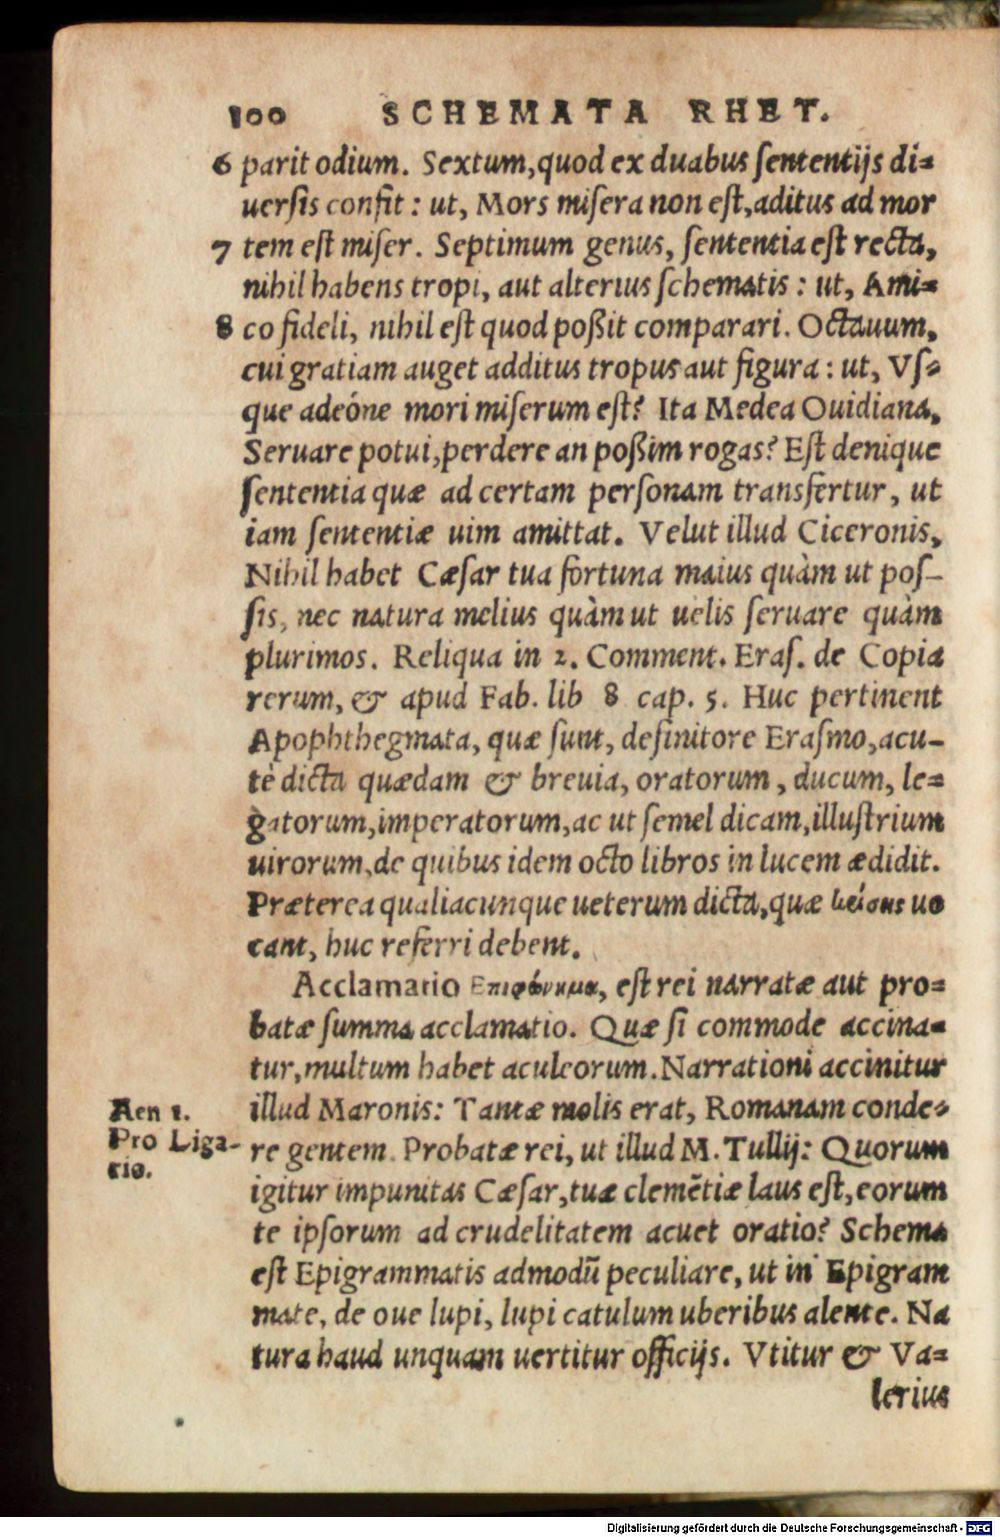 100 SCHEMATA RHET.
6 parit odium. Sextum, quod ex duabus sententijs di=
uersis confit : ut, Mors misera non est, aditus ad mor
7 tem est miser. Septimum genus, sententia est recta,
nihil habens tropi, aut alterius schematis : ut, Ami=
8 co fideli, nihil est quod poßit comparari. Octauum,
cui gratiam auget additus tropus aut figura : ut, Vs=
que adeóne mori miserum est? Ita Medea Ouidiana,
Seruare potui, perdere an poßim rogas? Est denique
sententia quæ ad certam personam transfertur, ut
iam sententiæ uim amittat. Velut illud Ciceronis,
Nihil habet Cæsar tua fortuna maius quàm ut pos-
sis, nec natura melius quàm ut uelis seruare quàm
plurimos. Reliqua in 2. Comment. Eras. de Copia
rerum, & apud Fab. lib 8 cap. 5. Huc pertinent
Apophthegmata, quæ sunt, definitore Erasmo, acu-
tè dicta quædam & breuia, oratorum, ducum, le=
gatorum, imperatorum, ac ut semel dicam, illustrium
uirorum, de quibus idem octo libros in lucem ædidit.
Præterea qualiacunque ueterum dicta, quæ uo
cant, huc referri debent.
Acclamatio Επιφώνημα, est rei narratæ aut pro=
batæ summa acclamatio. Quæ si commode accina=
tur, multum habet aculeorum. Narrationi accinitur
Aen 1. illud Maronis: Tantæ molis erat, Romanam conde=
Pro Liga- re gentem. Probatæ rei, ut illud M. Tullij: Quorum
rio. igitur impunitas Cæsar, tuæ clemẽtiæ laus est, eorum
te ipsorum ad crudelitatem acuet oratio? Schema
est Epigrammatis admodũ peculiare, ut in Epigram
mate, de oue lupi, lupi catulum uberibus alente. Na
tura haud unquam uertitur officijs. Vtitur & Va=
lerius
Digitalisierung gefördert durch die Deutsche Forschungsgemeinschaft - DFG